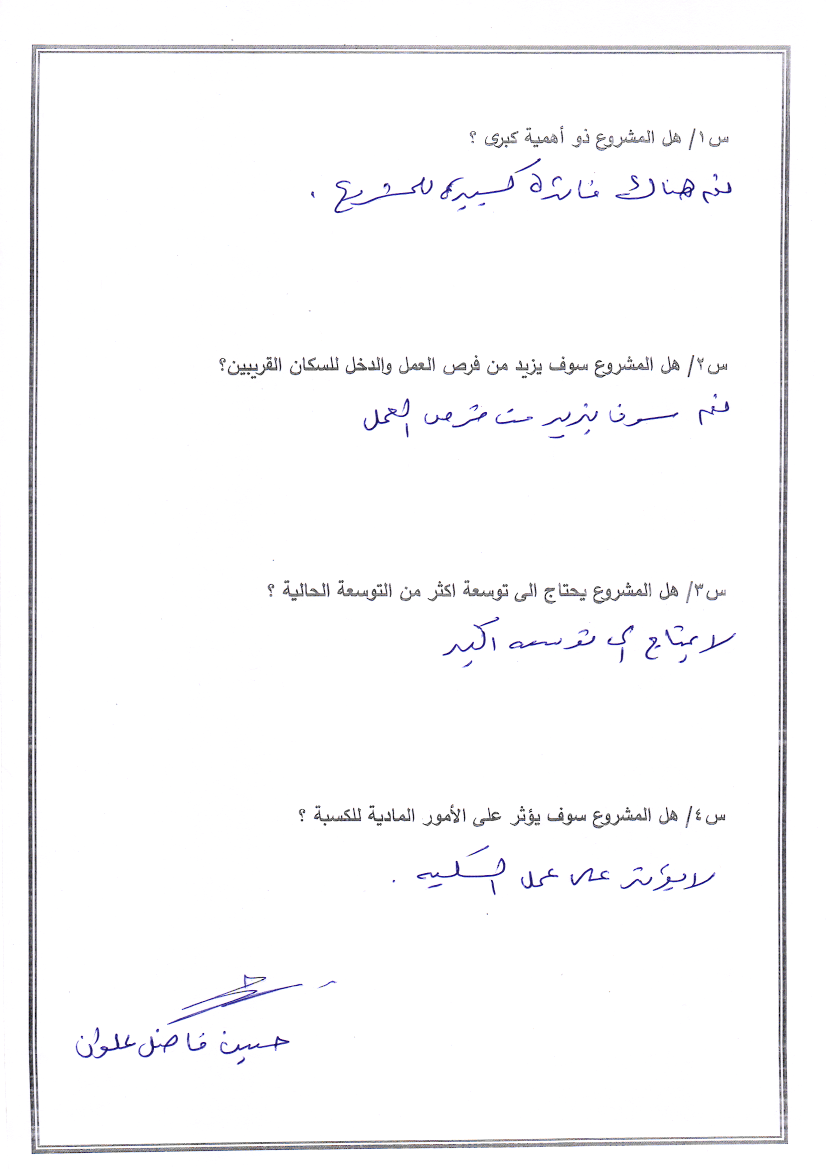 س١/ هل المشروع ذو أهمية كبرى ؟
نعم هناك فائدة كبيرة للمشروع .
س٢/ هل المشروع سوف يزيد من فرص العمل والدخل للسكان القريبين؟
نعم سوف يزيد من فرص العمل
س٣/ هل المشروع يحتاج الى توسعة اكثر من التوسعة الحالية ؟
لا يحتاج الى توسعه اكبر
س٤/ هل المشروع سوف يؤثر على الأمور المادية للكسبة ؟
لا يؤثر على عمل .
حسين فاضل علوان